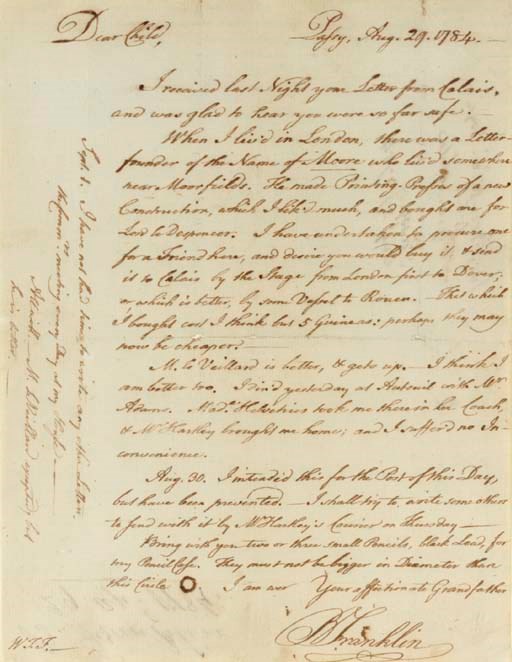 Dear Child,
Passy, Aug. 29. 1784.—
I received last Night your Letter from Calais,
and was glad to hear you were so far safe.
When I liv'd in London, there was a Letter-
founder of the Name of Moore who liv'd somewhere
near Moorfields. He made Printing-Presses of a new
Construction, which I lik'd much, and bought one for
Lord le Despencer. I have undertaken to procure one
for a Friend here, and desire you would buy it, & send
it to Calais by the Stage from London first to Dover,
or which is better, by some Vessel to Rouen.— That which
I bought cost I think but 5 Guineas: perhaps they may
now be cheaper.—
M. le Veillard is better, & gets up.— I think I
am better too. I din'd yesterday at Auteuil with Mr
Adams. Made. Helvetius took me there in her Coach,
& Mr Hartley brought me home; and I suffer'd no In-
convenience.
Aug. 30. I intended this for the Post of this Day,
but have been prevented.— I shall try to write some others
to send with it by Mr Hartley's Courier on Thursday—
Bring with you two or three small Pencils, black Lead, for
my Pencil Case. They must not be bigger in Diameter than
this Circle O I am ever Your affectionate Grandfather
B Franklin
W.T.F.—
Sept. 1. I have not had time to write any other Letters.
the Commrs. meeting every Day at my House.—
M. le Veillard
his Letter.—